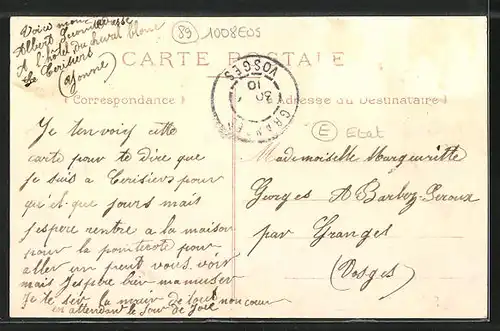 Voice mon adresse
Albert
A l'hotel du cheval blanc
Cerisiers
(Yonne)
89 1008EOS
CARTE POSTALE
Correspondance
Adresse du Destinataire
GRANGES
30
10
VOSGES
E Etat
Je tenvoiy cette
carte pour te dire que
je suis a Cerisiers pour
quel que jours mais
jespere rentre a la maison
pour la pointicote pour
aller un peut vous voir
mais jespere bien mamuser
Je te ser la main de tout mon cœur
en attendant le jour de
Mademoiselle Marguritte
Georges A Barboz-Seroux
par Granges
(Vosges)